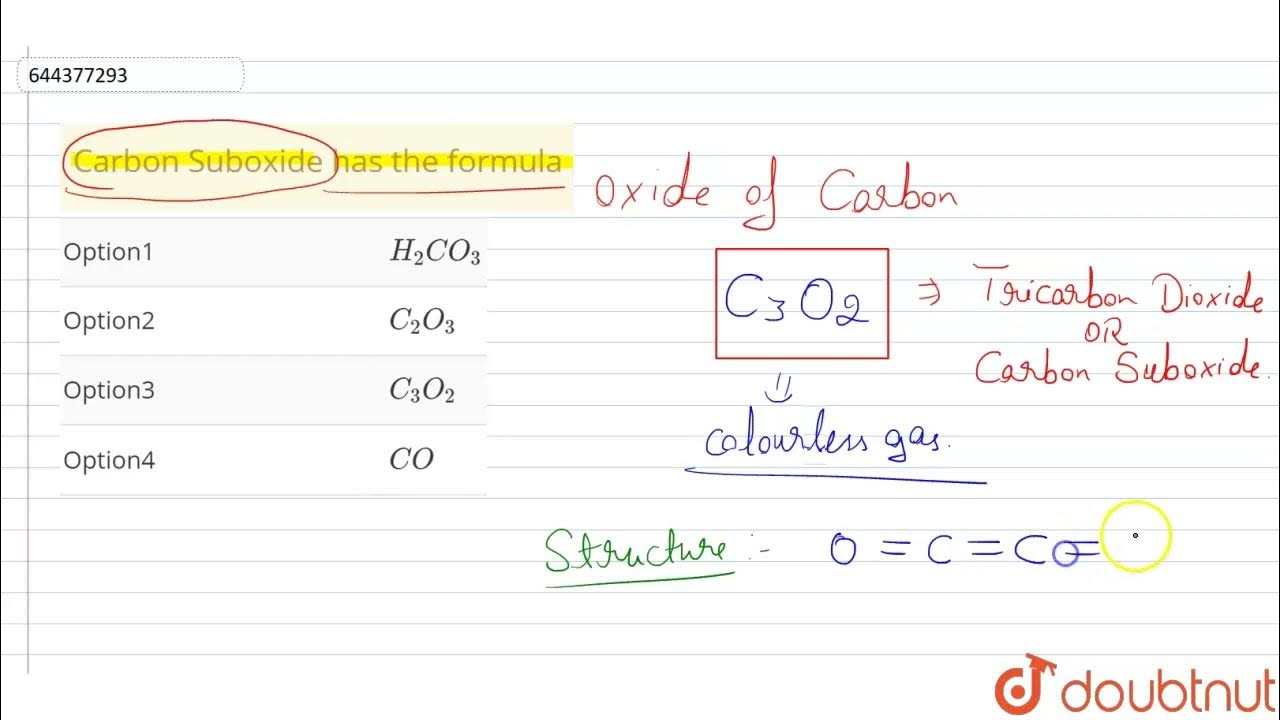 644377293
Carbon Suboxide has the formula
Oxide of Carbon
Option1 H₂CO₃
Option2 C₂O₃
Option3 C₃O₂
Option4 CO
C₃O₂ ⇒ Tricarbon Dioxide
OR
Carbon Suboxide.
colourless gas.
Structure :- O = C = C =
doubtnut